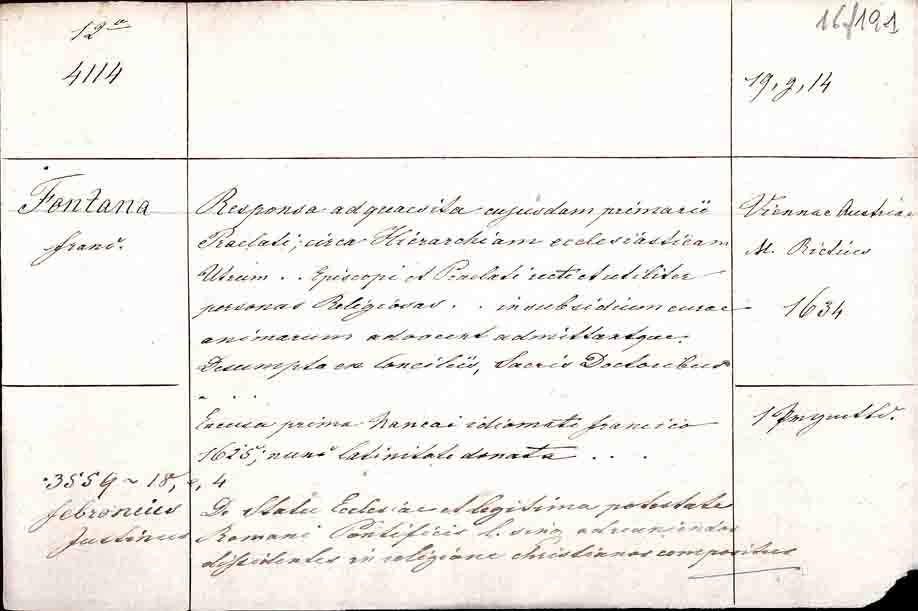 12º
4114
16/191
19, g, 14
Fontana
franc.
Responsa ad quaesita cujusdam primarii
Praelati; circa Hierarchiam ecclesiasticam
Utrum . . Episcopi et Praelati recte et utiliter
personas Religiosas . . in subsidium curae
animarum advocent admittantque.
Desumpta ex Conciliis, Sacris Doctoribus
. . . .
Excusa prima Nancai idiomate francico
1625; nunc latinitate donata . . . .
Viennae Austriae
M. Rictius
1634
1
3559 ~ 18, e, 4
febronius
Justinus
De Statu Ecclesiae et legitima potestate
Romani Pontificis l. sing. ad reuniendos
dissidentes in religione christianos compositus